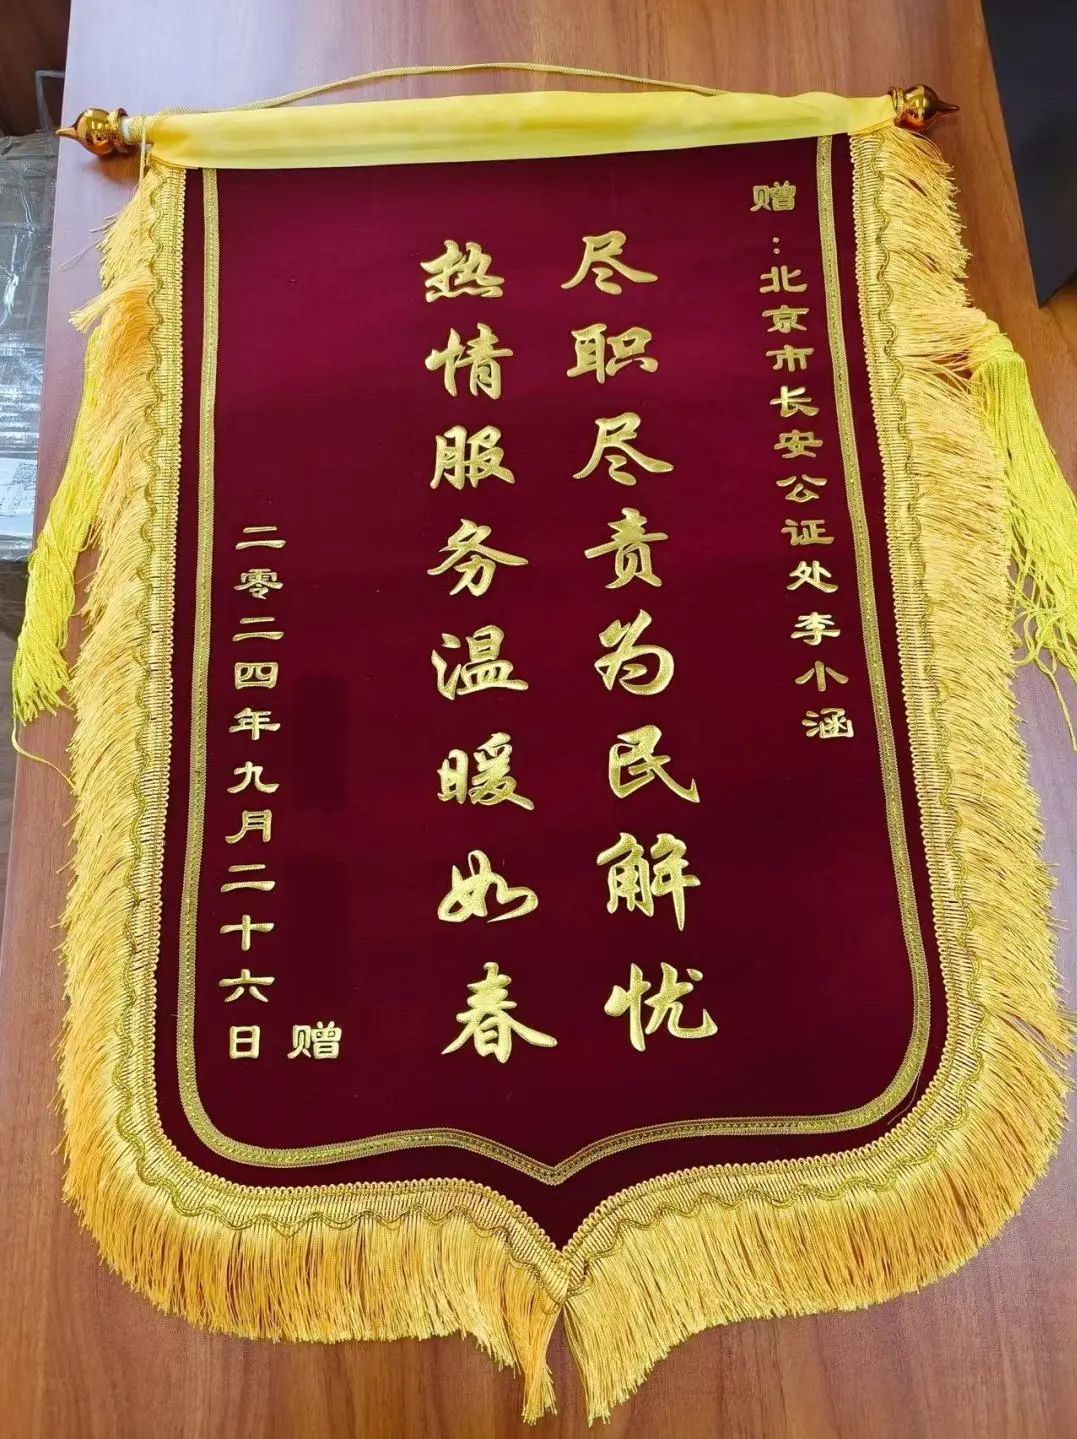 赠：北京市长安公证处李小涵
尽职尽责为民解忧
热情服务温暖如春
赠
二零二四年九月二十六日